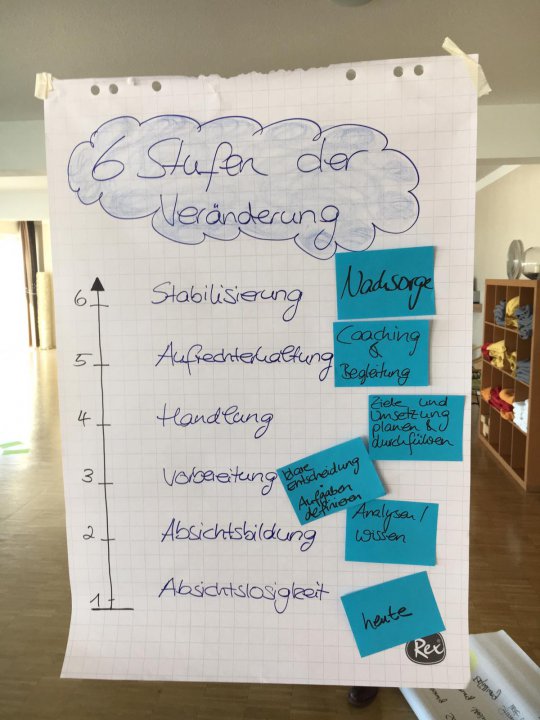 6 Stufen der
Veränderung
6 Stabilisierung
Nachsorge
5 Aufrechterhaltung
Coaching
&
Begleitung
4 Handlung
Ziele und
Umsetzung
planen &
durchführen
3 Vorbereitung
klare
entscheidung
Aufgaben
definieren
2 Absichtsbildung
Analysen/
wissen
1 Absichtslosigkeit
heute
Rex